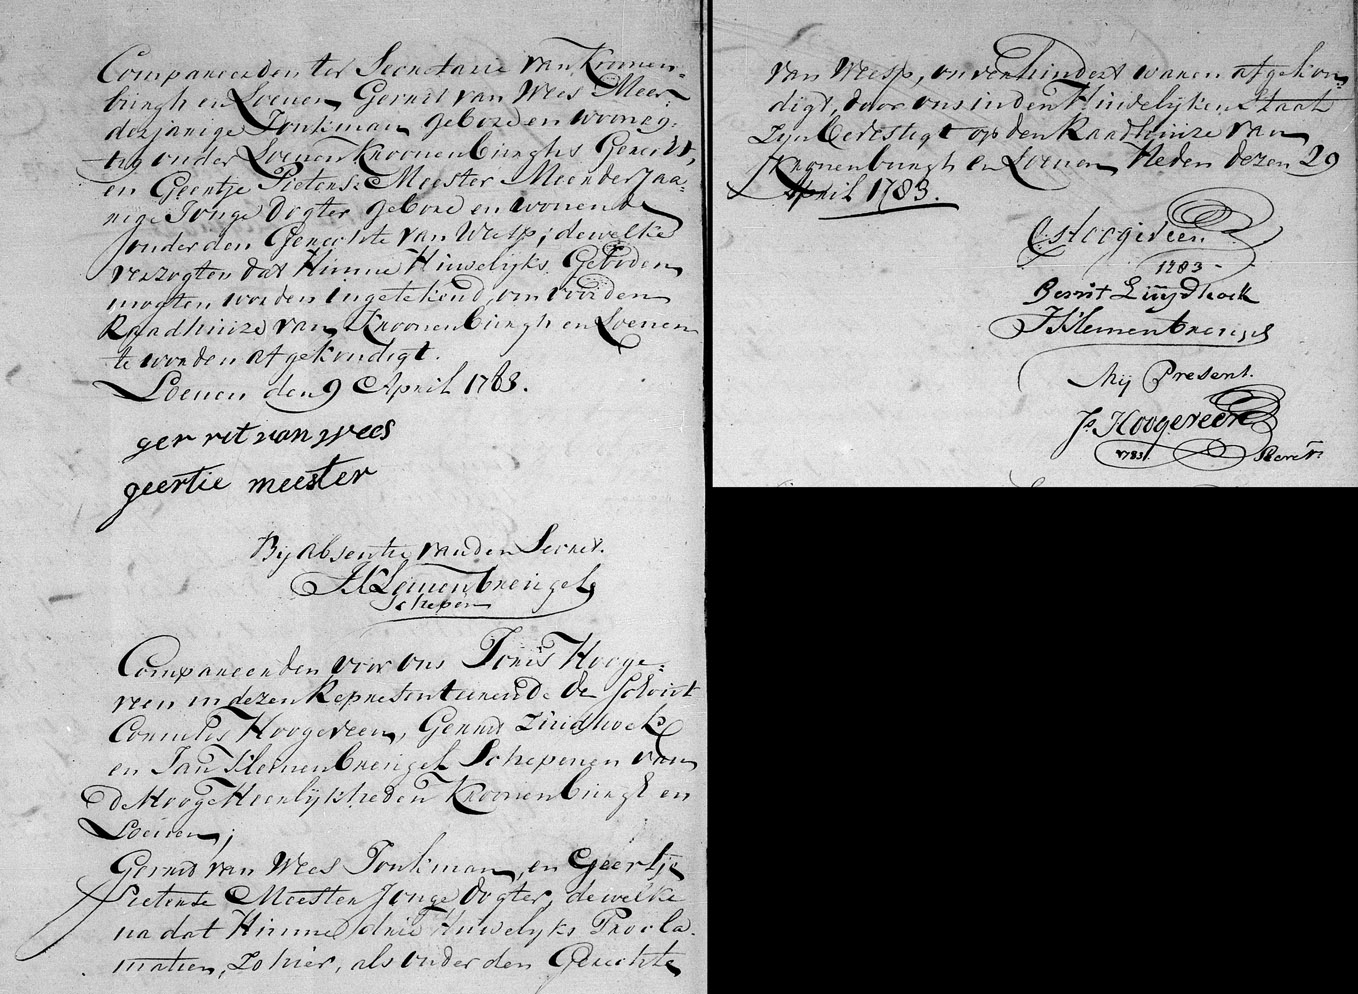 Compareerden ter Secretarie van Kronen-
burgh en Loenen Gerrit van Wees Meer-
derjarige Jonkman gebore en wonag-
tig onder Loenen Kroonenburghs Gerecht,
en Geertje Pieterse Meester Meerderjaa-
rige Jonge Dogter gebore en wonende
onder den Gerechte van Weesp; dewelke
verzogten dat Hunne Huwelijks Geboden
mogten worden ingetekend, om voor den
Raadhuize van Kroonenburgh en Loenen
te worden afgekondigt.
Loenen den 9 April 1783.
gerrit van wees
geertie meester
By absentie van den Secret.
J Klemenbrengel
Schepen
Compareerden voor ons Joris Hooge-
veen in dezen Representeerende de Schout
Cornelis Hoogeveen, Gerrit Zuidhoek
en Jan Klemenbrengel Schepenen van
de Hooge Heerlijkheden Kroonenburgh en
Loenen;
Gerrit van Wees Jonkman, en Geertje
Pieterse Meester Jonge Dogter, dewelke
na dat Hunne drie Huwelyks Procla-
matien, zo hier, als onder den Gerechte
van Weesp, onverhindert waren afgekon-
digt, door ons in den Huwelijken Staat
zyn bevestigt op den Raadhuize van
Kronenburgh en Loenen Heden dezen 29
April 1783.
C. Hoogeveen
1783
Gerrit Zuydhoek
J Klemenbrengel
Mij Present.
Js Hoogeveen
1783 Secrets.